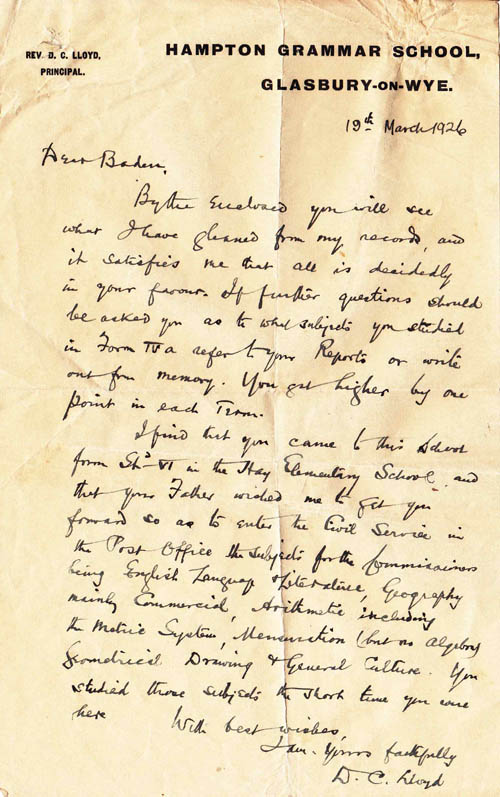 REV. D. C. LLOYD,
PRINCIPAL.
HAMPTON GRAMMAR SCHOOL,
GLASBURY-ON-WYE.
19th March 1926
Dear Baden,
By the Enclosed you will see
what I have gleaned from my records, and
it satisfies me that all is decidedly
in your favour. If further questions should
be asked you as to what subjects you studied
in Form IV a refer to your Reports or write
out from memory. You get higher by one
point in each Term.
I find that you came to this School
from Std VI in the Hay Elementary School and
that your Father wished me to get you
forward so as to enter the Civil Service in
the Post Office the subjects for the Commissioners
being English Language & Literature, Geography
mainly Commercial, Arithmetic including
the Metric System, Mensuration (but no Algebra)
Geometrical Drawing & General Culture. You
studied those subjects the short time you were
here With best wishes,
I am. Yours faithfully
D. C. Lloyd